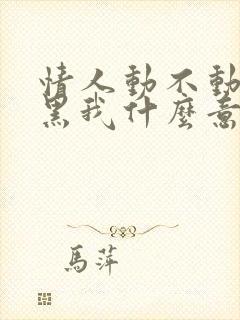 情人動不動
黑我什麼意
馬萍